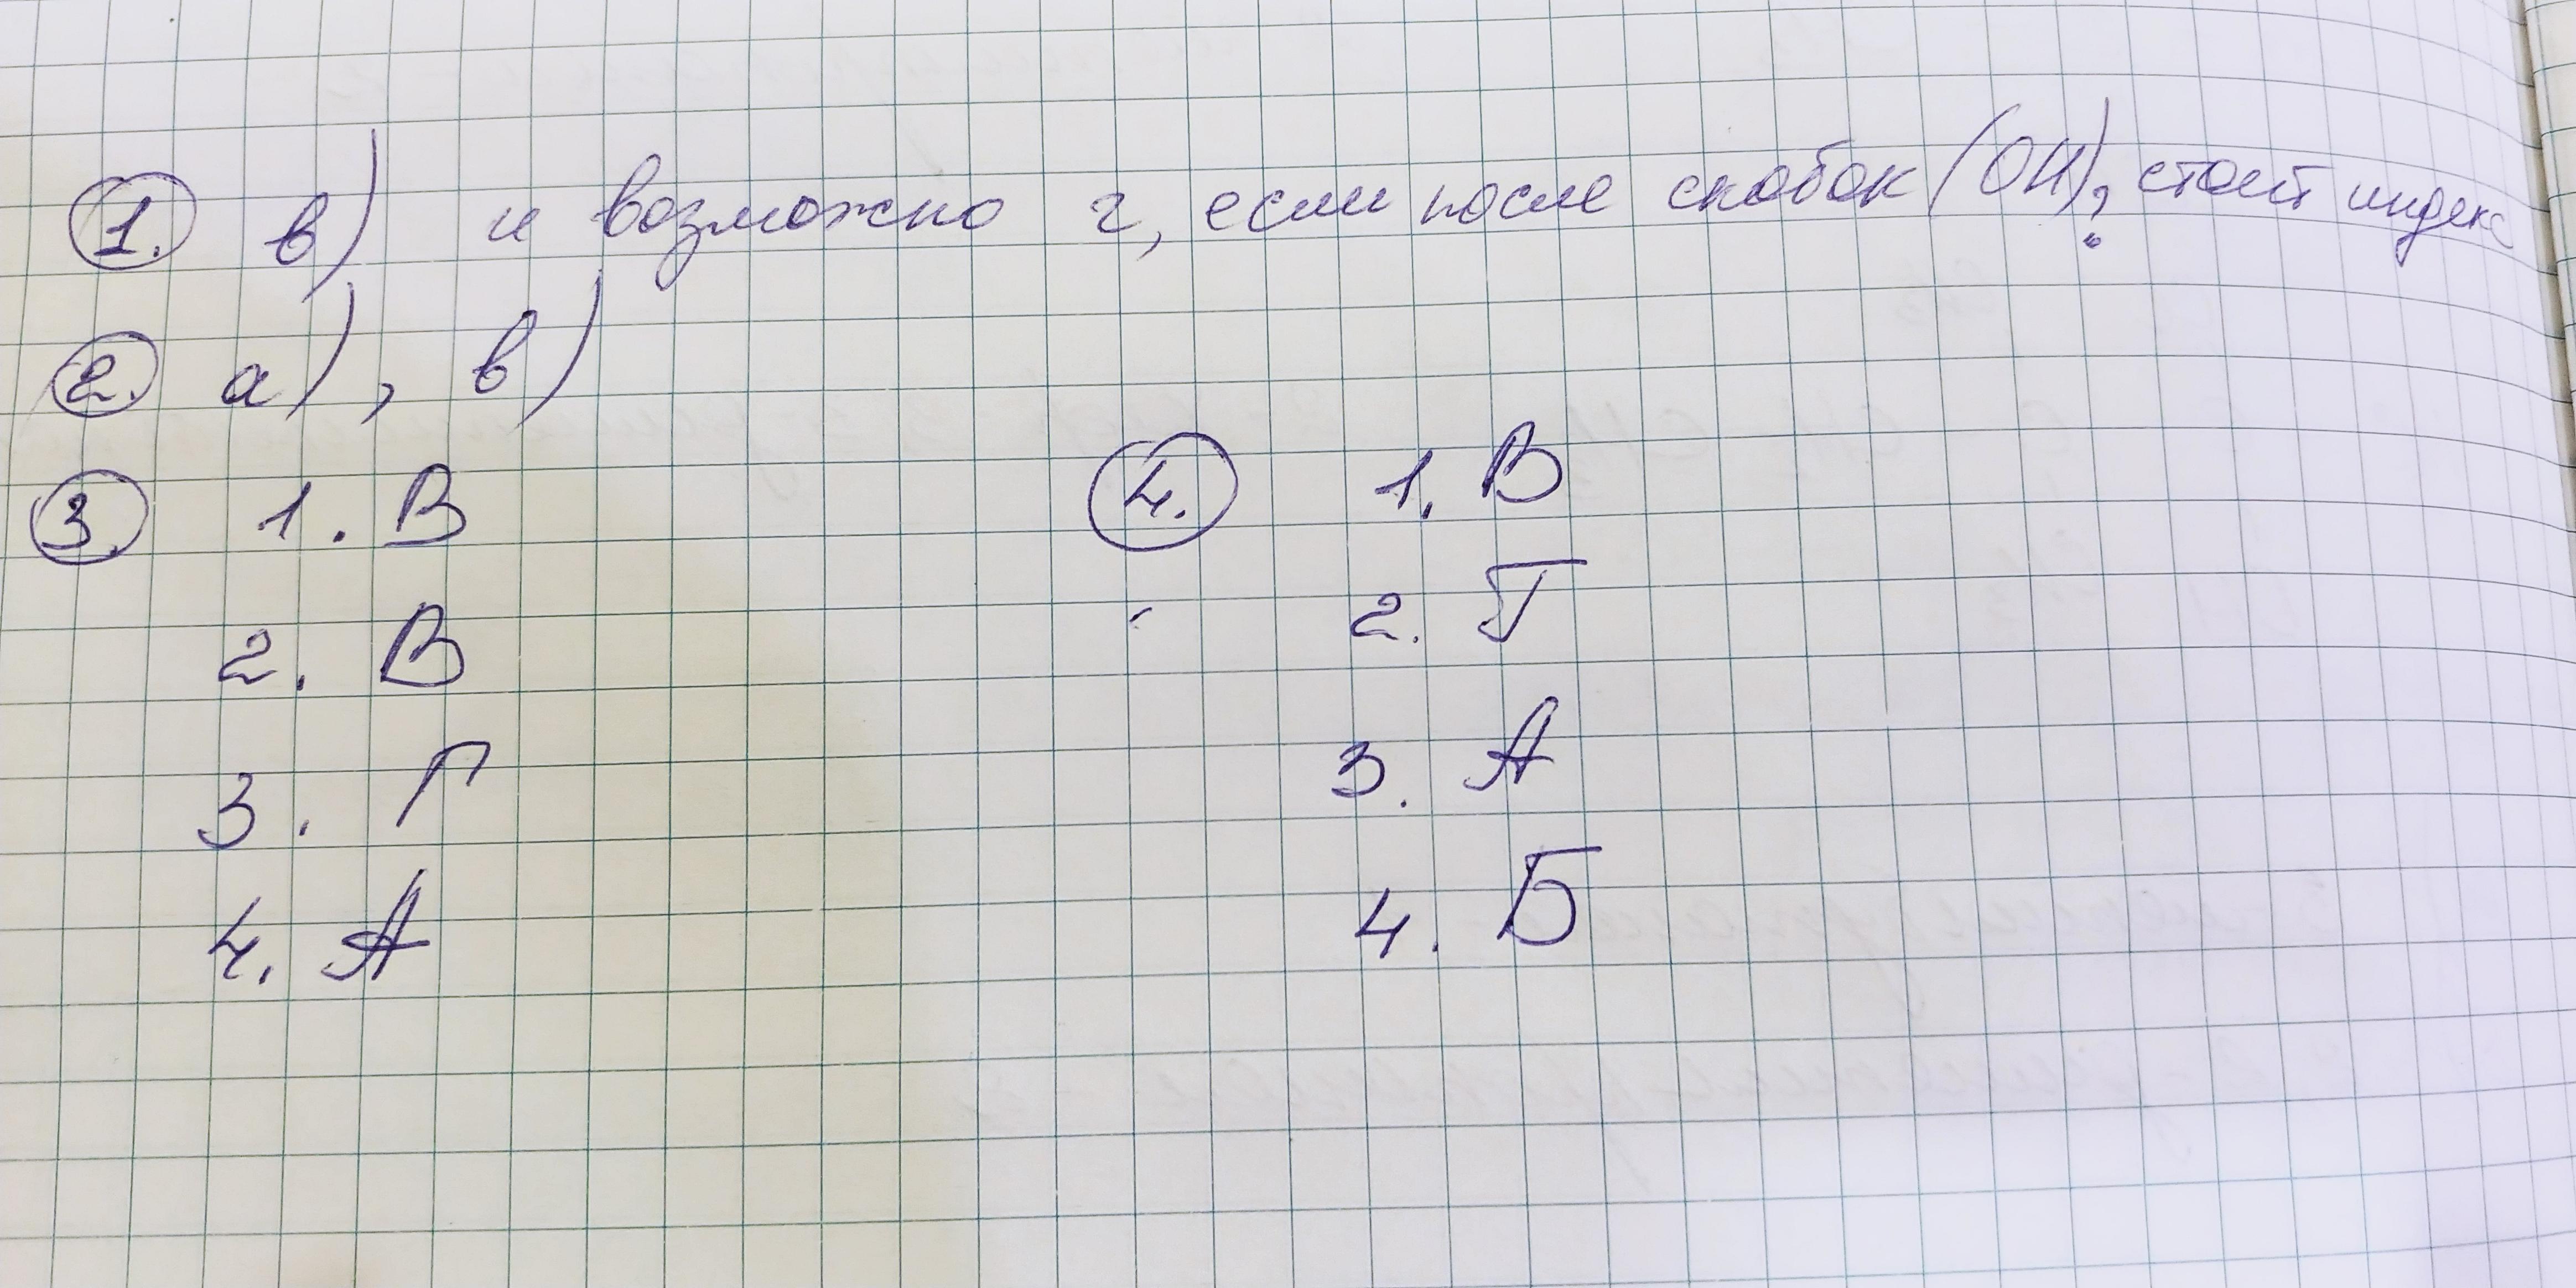 1. в) и возможно г, если после скобок (ОН)? стоит индекс
2. а), в)
3. 1. В
2. В
3. Г
4. А
4. 1. В
2. Г
3. А
4. Б